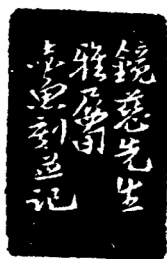 鏡慈先生
雅屬
赤魚刻並記